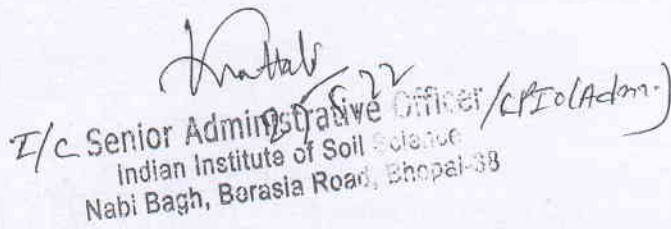 I/C Senior Administrative Officer/CPIO(Adm.)
Indian Institute of Soil Science
Nabi Bagh, Berasia Road, Bhopal-38